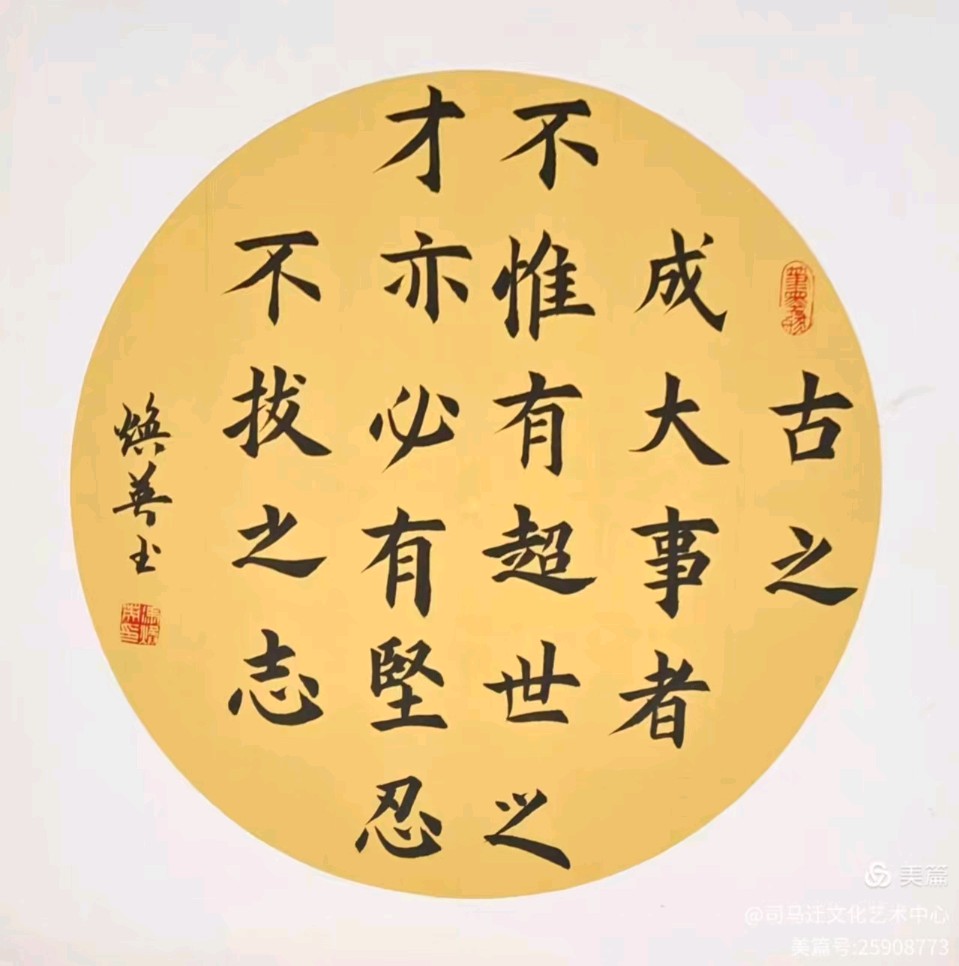 古之
成大事者
不惟有超世之
才亦必有堅忍
不拔之志
焕善书
美篇
@司马迁文化艺术中心
美篇号:25908773